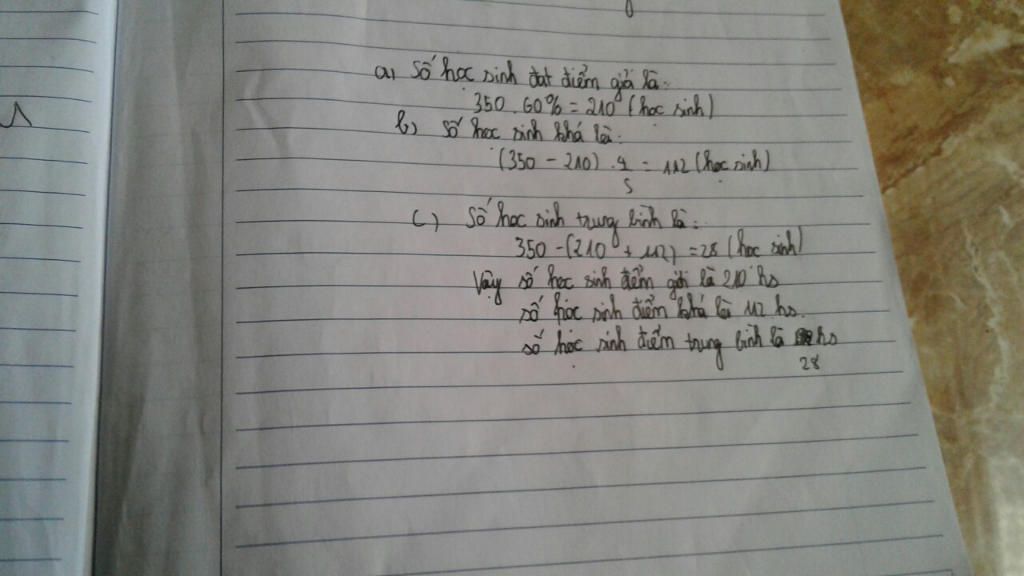 a, Số học sinh đạt điểm giỏi là:
350 . 60% = 210 (học sinh)
b, Số học sinh khá là:
(350 - 210) . 4/5 = 112 (học sinh)
c, Số học sinh trung bình là:
350 - (210 + 112) = 28 (học sinh)
Vậy số học sinh điểm giỏi là 210 hs
số học sinh điểm khá là 112 hs.
số học sinh điểm trung bình là hs
28